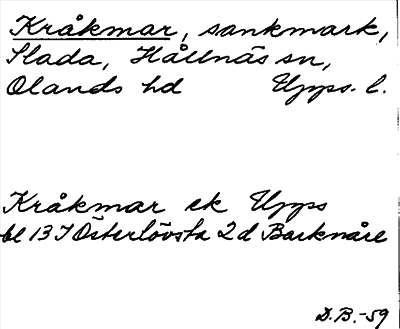 Kråkmar, sankmark,
Slada, Hållnäs sn,
Olands hd Upps. l.
Kråkmar ek Upps
bl 13 I Österlövsta 2 d Barknåre
D.B.-59